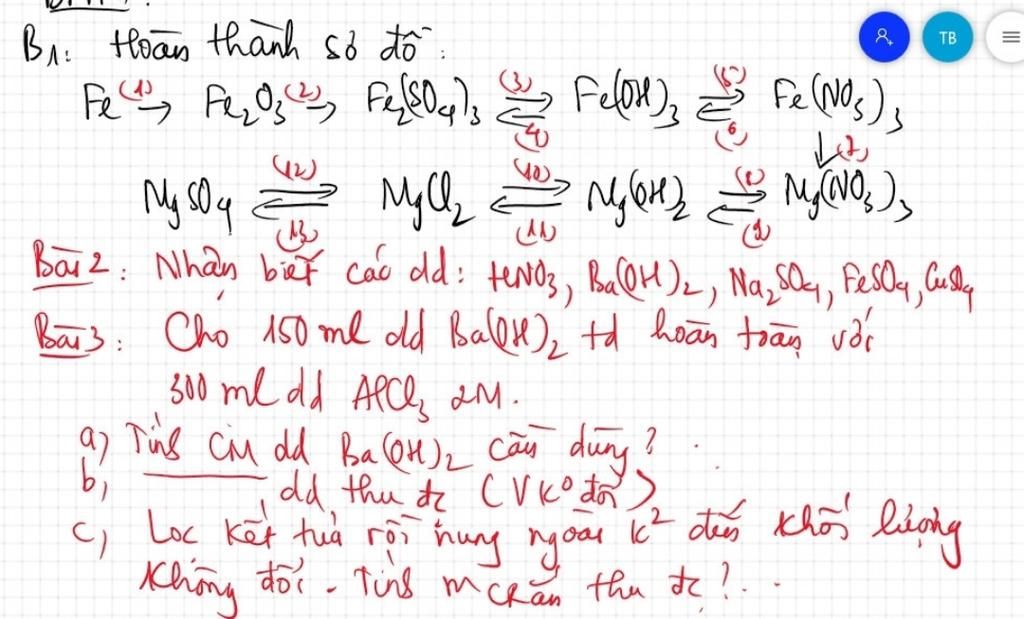 TB
B1: Hoàn thành sơ đồ:
Fe (1)→ Fe2O3 (2)→ Fe2(SO4)3 (3)⇌(4) Fe(OH)3 (5)⇌(6) Fe(NO3)3
↓(7)
MgSO4 (12)⇌(13) MgCl2 (10)⇌(11) Mg(OH)2 (8)⇌(9) Mg(NO3)3
Bài 2: Nhận biết các dd: HNO3, Ba(OH)2, Na2SO4, FeSO4, CuSO4
Bài 3: Cho 150 ml dd Ba(OH)2 td hoàn toàn với
300 ml dd AlCl3 2M.
a) Tính CM dd Ba(OH)2 cần dùng?
b) dd thu đc (V ko đổi)
c) Lọc kết tủa rồi nung ngoài k2 đến khối lượng
không đổi. Tính m chắn thu đc?